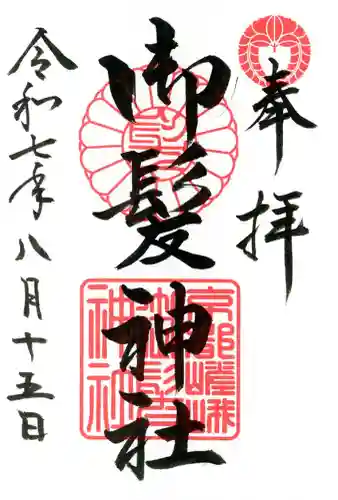 奉拝
御髪神社
京都嵯峨
御髪神社
令和七年八月十五日